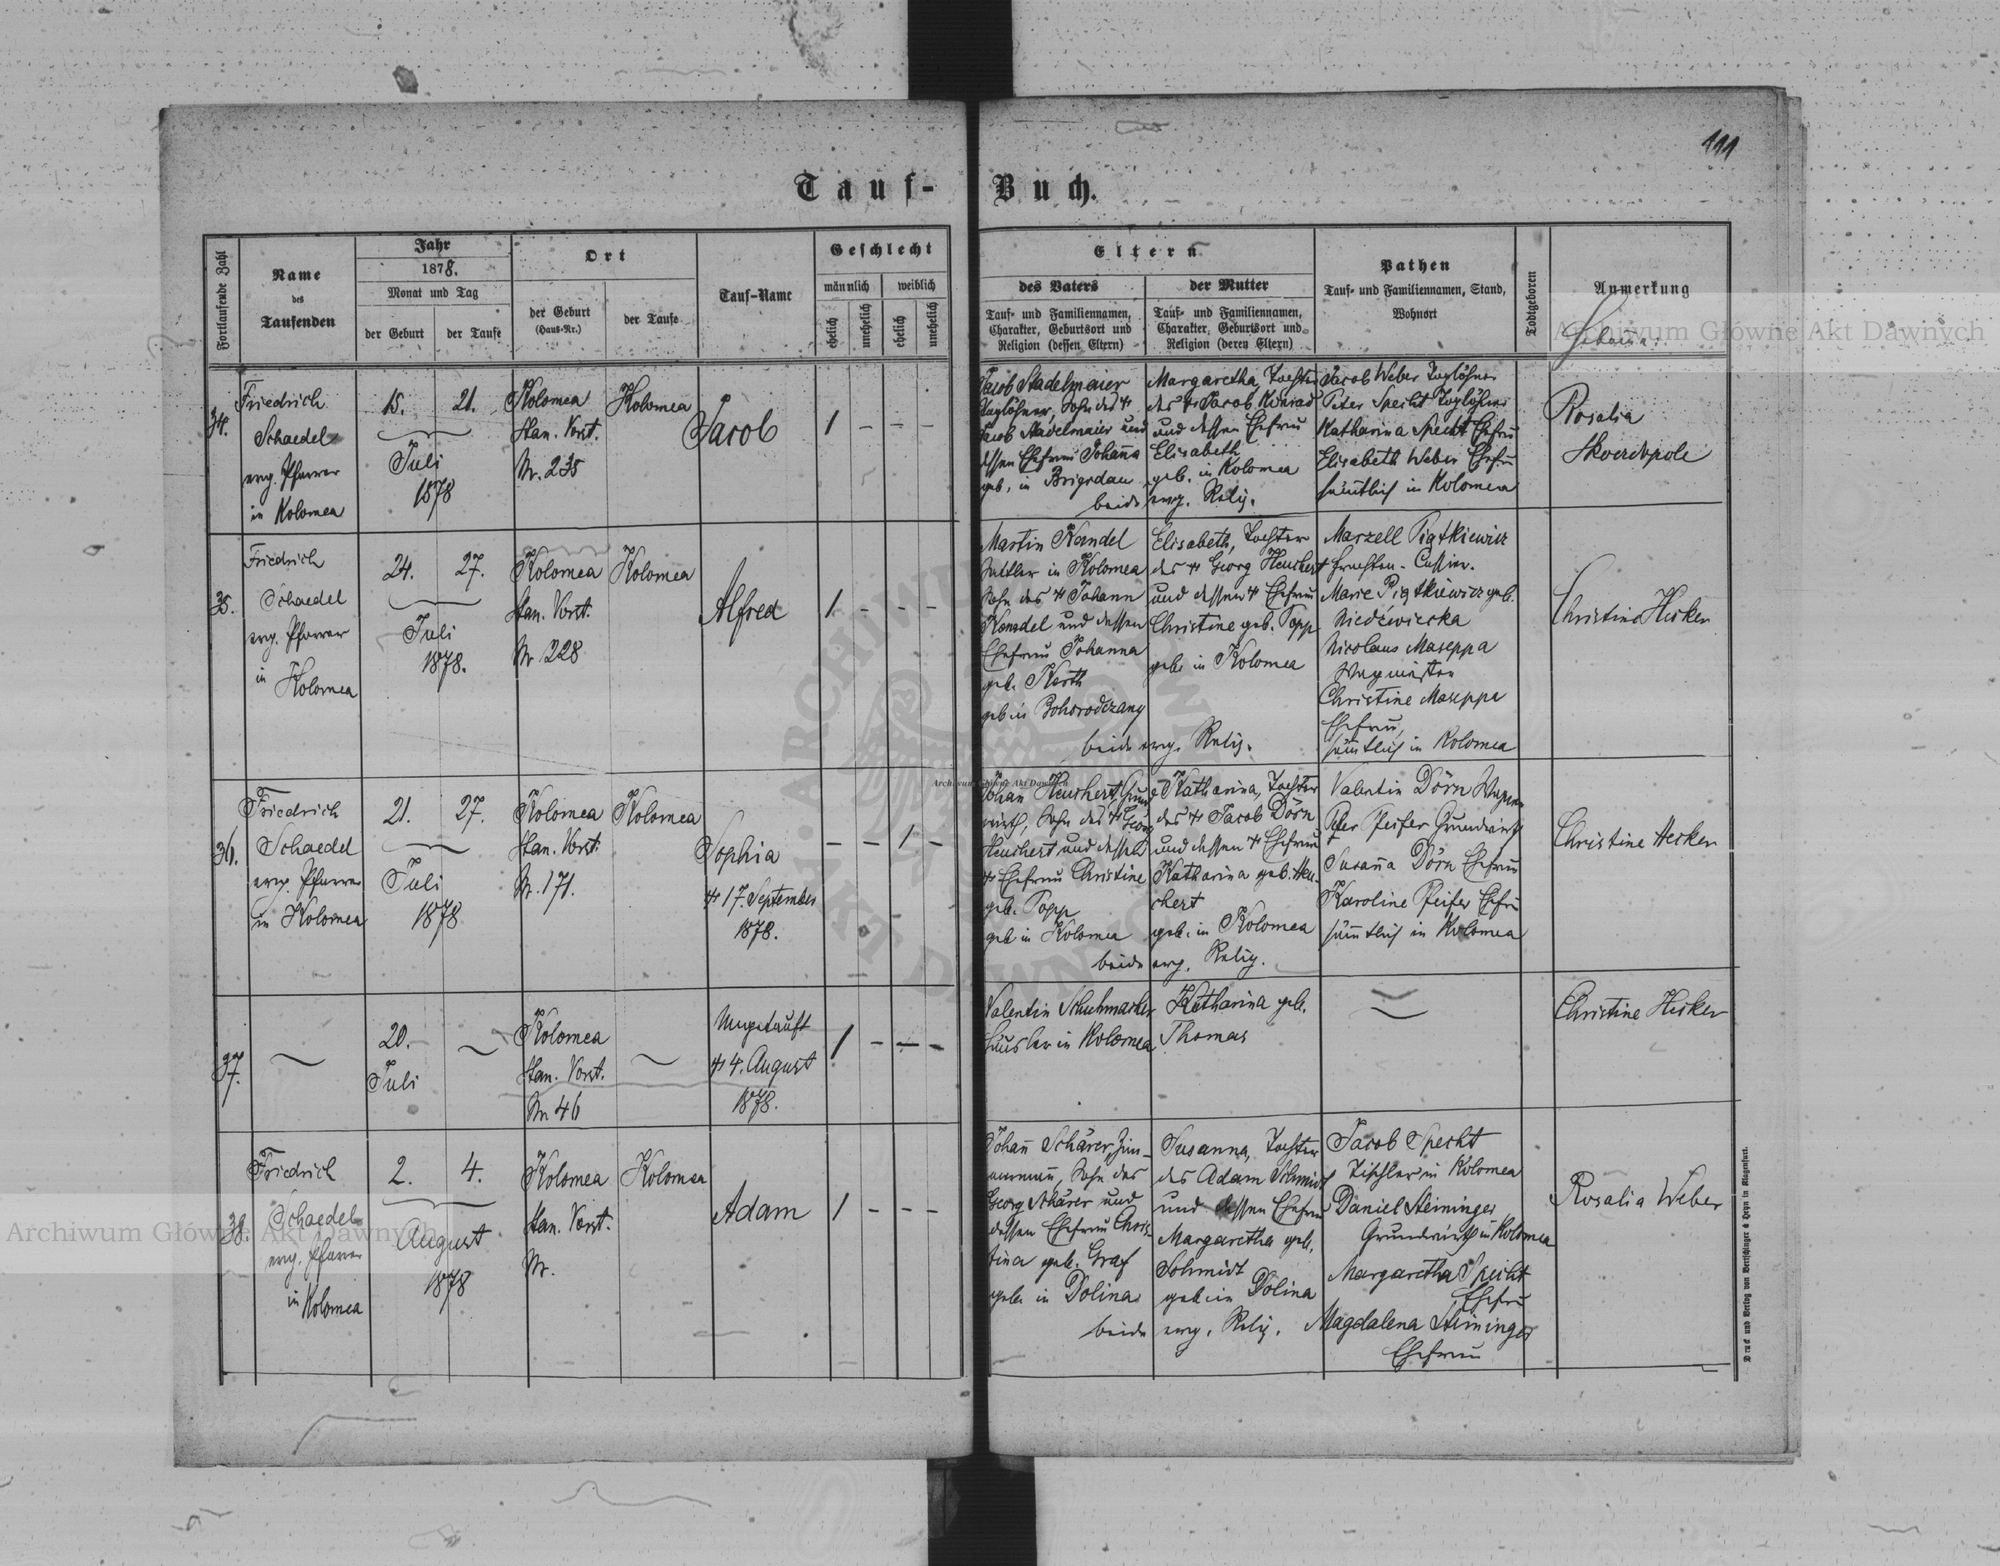 111
Tauf- Buch.
Fortlaufende Zahl
Name
des
Taufenden
Jahr
1878.
Monat und Tag
der Geburt
der Taufe
Ort
der Geburt
(Haus-Nr.)
der Taufe
Tauf-Name
Geschlecht
männlich
weiblich
ehelich
unehelich
ehelich
unehelich
Eltern
des Vaters
Tauf- und Familiennamen,
Charakter, Geburtsort und
Religion (dessen Eltern)
der Mutter
Tauf- und Familiennamen,
Charakter, Geburtsort und
Religion (deren Eltern)
Pathen
Tauf- und Familiennamen, Stand,
Wohnort
Todtgeboren
Anmerkung
34.
Friedrich
Schaedel
evg. Pfarrer
in Kolomea
15.
21.
Juli
1878
Kolomea
Stan. Vorst.
Nr. 235
Kolomea
Jacob
1 - - -
Jacob Stadelmaier
Taglöhner, Sohn des †
Jacob Stadelmaier und
dessen Ehefrau Johanna
geb. in Brigidau
Margaretha, Tochter
des † Jacob Konrad
und dessen Ehefrau
Elisabeth
geb. in Kolomea
beide evg. Relig.
Jacob Weber Taglöhner
Peter Specht Taglöhner
Katharina Specht Ehefrau
Elisabeth Weber Ehefrau
sämtlich in Kolomea
Rosalia
Skorodpole
35.
Friedrich
Schaedel
evg. Pfarrer
in
Kolomea
24.
27.
Juli
1878.
Kolomea
Stan. Vorst.
Nr. 228
Kolomea
Alfred
1 - - -
Martin Kandel
Sattler in Kolomea
Sohn des † Johann
Kandel und dessen
Ehefrau Johanna
geb. Karth
geb. in Bohorodczany
Elisabeth, Tochter
des † Georg Heuchert
und dessen † Ehefrau
Christine geb. Popp
geb. in Kolomea
beide evg. Relig.
Marzell Piątkiewicz
Cassier.
Marie Piątkiewicz geb.
Niedźwiecka
Nicolaus Maseppa
Christine Maseppa
Ehefrau,
sämtlich in Kolomea
Christine Hecker
36.
Friedrich
Schaedel
evg. Pfarrer
in Kolomea
21.
27.
Juli
1878
Kolomea
Stan. Vorst.
Nr. 171.
Kolomea
Sophia
† 17. September
1878.
- - 1 -
Johan Heuchert, Grund-
wirth, Sohn des † Georg
Heuchert und dessen
† Ehefrau Christine
geb. Popp
geb. in Kolomea
Katharina, Tochter
des † Jacob Dörn
und dessen † Ehefrau
Katharina geb. Heu-
chert
geb. in Kolomea
beide evg. Relig.
Valentin Dörn
Peter Pfeifer Grundwirth
Susana Dörn Ehefrau
Karoline Pfeifer Ehefrau
sämtlich in Kolomea
Christine Hecker
37.
20.
Juli
Kolomea
Stan. Vorst.
Nr. 46
Ungetauft
† 4. August
1878.
1 - - -
Valentin Schuhmacher
Häusler in Kolomea
Katharina geb.
Thomas
Christine Hecker
38.
Friedrich
Schaedel
evg. Pfarrer
in Kolomea
2.
4.
August
1878
Kolomea
Stan. Vorst.
Nr.
Kolomea
Adam
1 - - -
Johann Schärer, Zim-
mermann, Sohn des
Georg Schärer und
dessen Ehefrau Chris-
tina geb. Graf
geb. in Dolina
Susanna, Tochter
des Adam Schmidt
und dessen Ehefrau
Margaretha geb.
Schmidt
geb. in Dolina
beide evg. Relig.
Jacob Specht
Tischler in Kolomea
Daniel Steininger
Grundwirth in Kolomea
Margaretha Specht
Ehefrau
Magdalena Steininger
Ehefrau
Rosalia Weber
Druck und Verlag von Bertschinger & Heyn in Klagenfurt.
Archiwum Główne Akt Dawnych
Archiwum Główne Akt Dawnych
Archiwum Główne Akt Dawnych